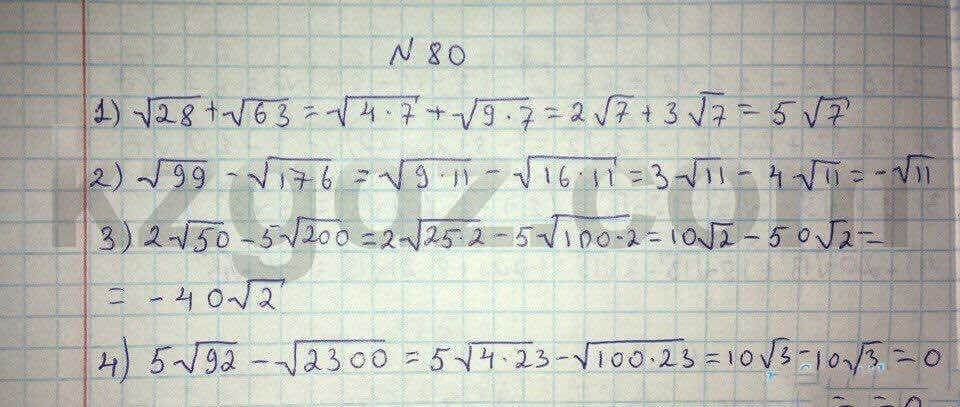 N 80
1) √28 + √63 = √4·7 + √9·7 = 2√7 + 3√7 = 5√7
2) √99 - √176 = √9·11 - √16·11 = 3√11 - 4√11 = -√11
3) 2√50 - 5√200 = 2√25·2 - 5√100·2 = 10√2 - 50√2 =
= -40√2
4) 5√92 - √2300 = 5√4·23 - √100·23 = 10√3 - 10√3 = 0